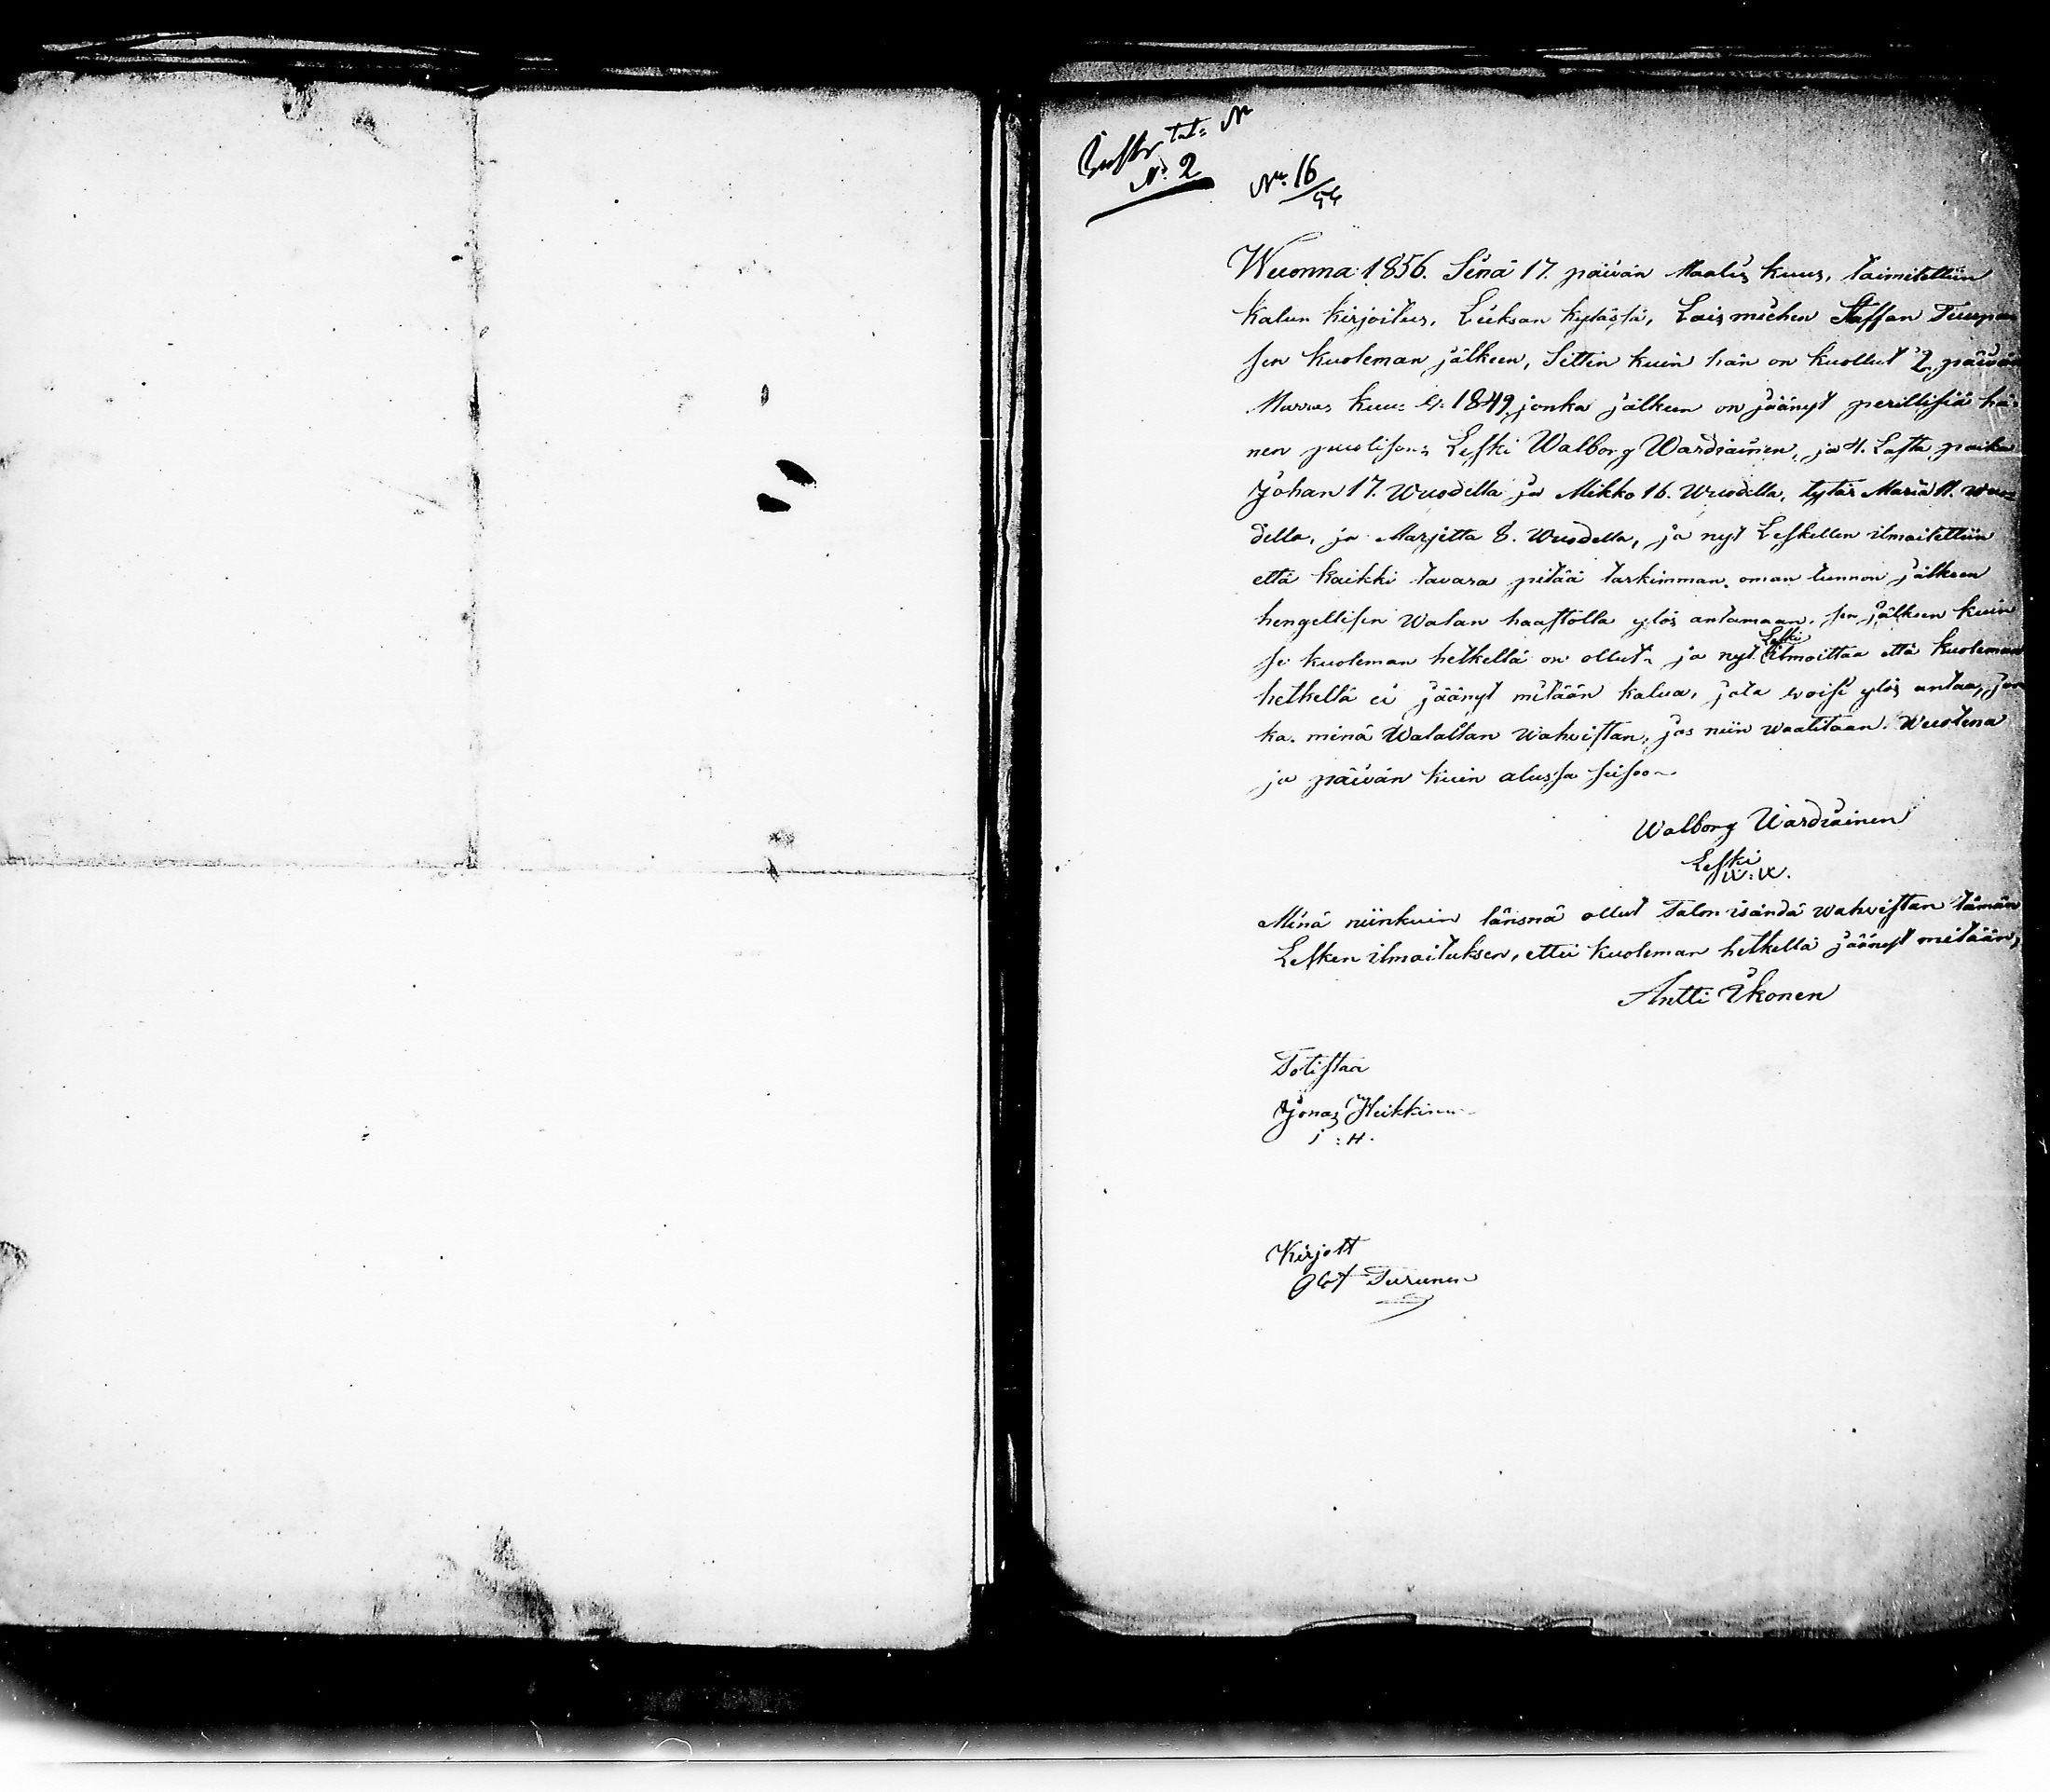 tal: N
No 2
No 16/56
Wuonna 1856. Sinä 17. päivän Maalis kuus, toimitettiin
Kalun kirjoitus, Lieksan kylästä, Lois miehen Staffan Tuupai
sen kuoleman jälkeen, Sittin kuin hän on kuollut 2 päivän
Marras kuus 1849, jonka jälkeen on jäänyt perillisiä hä=
nen puolison: Leski Walborg Wardiainen, ja 4. Lasta poika
Johan 17. Wuodella ja Mikko 16. Wuodella, tytär Maria 11. wuo=
della, ja Marjitta 8. Wuodella, ja nyt Leskellen ilmoitettiin
että kaikki tavara pitää tarkimman oman tunnon jälkeen
hengellisen Walan haastolla ylös antamaan, sen jälkeen kuin
se kuoleman hetkellä on ollut, ja nyt Leski ilmoittaa että kuoleman
hetkellä ei jäänyt mitään kalua, jota woisi ylös antaa, jon
ka minä Walallan wahvistan, jos niin waatitaan. Wuotena
ja päivän kuin alussa seisoo
Walborg Wardiainen
Leski
W:W.
Minä niinkuin läsnä ollut Talon isändä wahvistan tämän
Lesken ilmoituksen, ettei kuoleman hetkellä jäänyt mitään,
Antti Ikonen
Totistaa
Jonas Heikkinen
J:H.
Kirjott
Olof Turunen